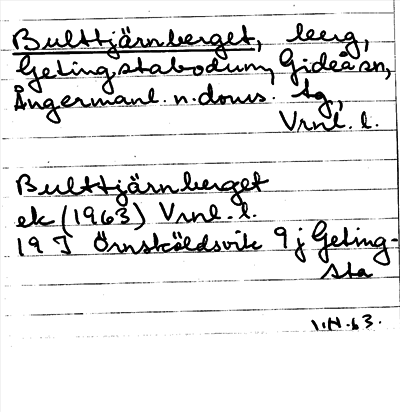 Bulttjärnberget, berg,
Getingstabodum, Gideå sn,
Ångermanl. n. doms. tg,
Vrnl. l.
Bulttjärnberget
ek (1963) Vrnl. l.
19 J Örnsköldsvik 9 j Geting-
sta
I.H.63.